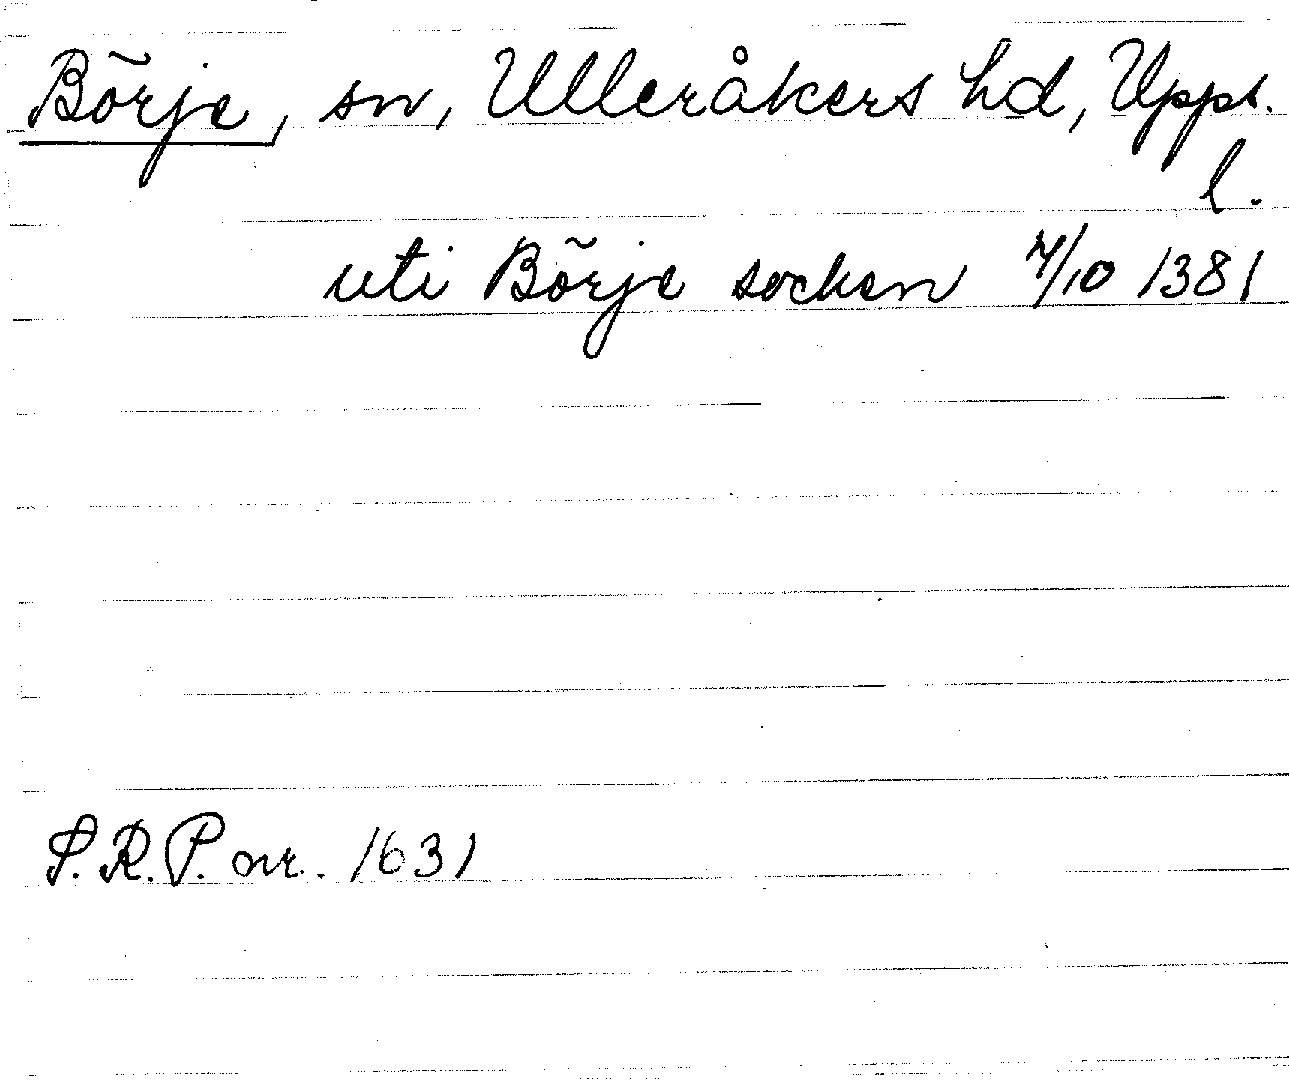 Börje, sn, Ulleråkers hd, Upps.
l.
uti Börje socken 7/10 1381
S.R.P. nr. 1631